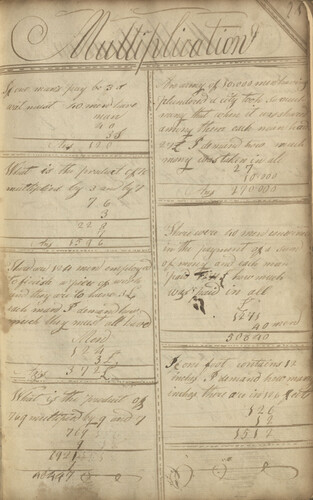 Multiplication
If one mans pay be 3 £
what must 60 men have
man
60
3 £
Ans 180
What is the product of 76
multiplied by 3 and by 7
76
3
228
7
Ans 1596
There are 124 men employed
to finish a piece of work
and they are to have 3 £
each man I demand how
much they must all have
Men
124
3 £
Ans 372 £
What is the product of
769 multiplied by 9 and 7
769
9
6921
7
48447
An army of 10000 men having
plundered a city took so much
money that when it was shared
among them each man had
27 £ I demand how much
money was taken in all
27
10000
Ans 270000
There were 40 men concerned
in the payment of a sum
of money and each man
paid 1271 £ how much
was paid in all
£
1271
40 men
50840
If one foot contains 12
inches I demand how many
inches there are in 126 feet
126
12
1512